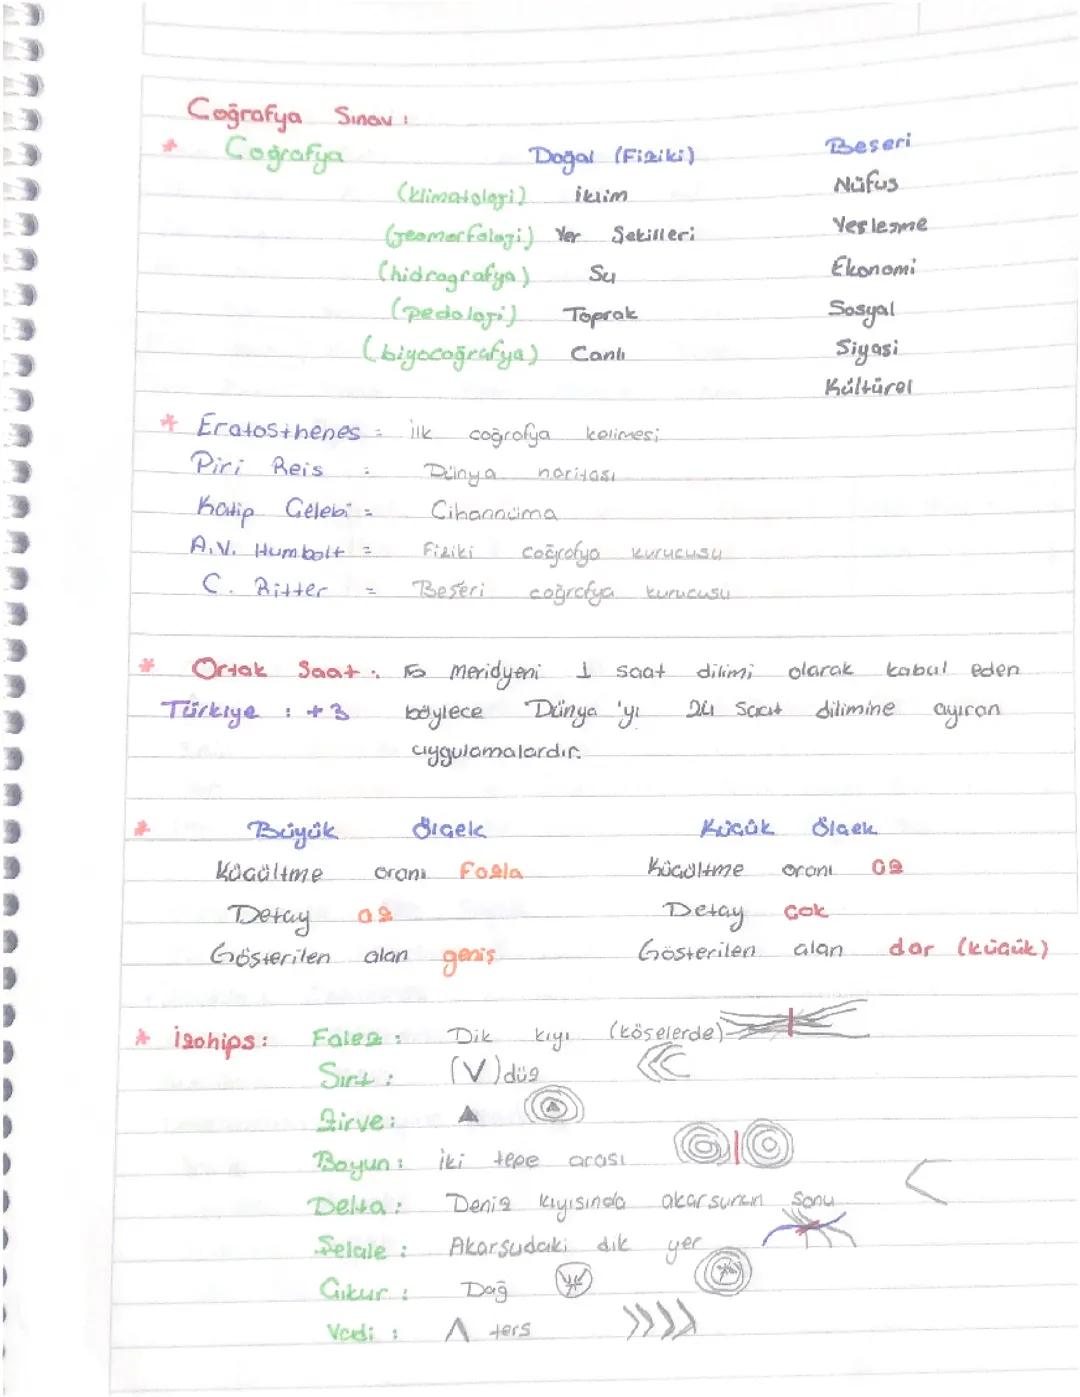 Coğrafya Sınavı:
* Coğrafya Doğal (Fiziki) Beşeri
(klimatoloji) iklim Nüfus
(jeomorfoloji) Yer Şekilleri Yerleşme
(hidrografya) Su Ekonomi
(pedoloji) Toprak Sosyal
(biyocoğrafya) Canlı Siyasi
Kültürel
* Eratosthenes = ilk coğrafya kelimesi
Piri Reis : Dünya haritası
Katip Çelebi = Cihannüma
A.V. Humbolt = Fiziki coğrafya kurucusu
C. Ritter = Beşeri coğrafya kurucusu
* Ortak Saat: meridyeni 1 saat dilimi olarak kabul eden
Türkiye : +3 böylece Dünya'yı 24 Saat dilimine ayıran
uygulamalardır.
* Büyük Ölçek Küçük Ölçek
Küçültme oranı Fazla Küçültme oranı az
Detay az Detay çok
Gösterilen alan geniş Gösterilen alan dar (küçük)
* İzohips: Falez : Dik kıyı (köşelerde)
Sırt : (V) düz
Zirve: ▲
Boyun : iki tepe arası
Delta : Deniz kıyısında akarsunun sonu
Şelale : Akarsudaki dik yer
Çukur : Dağ
Vadi : Λ ters